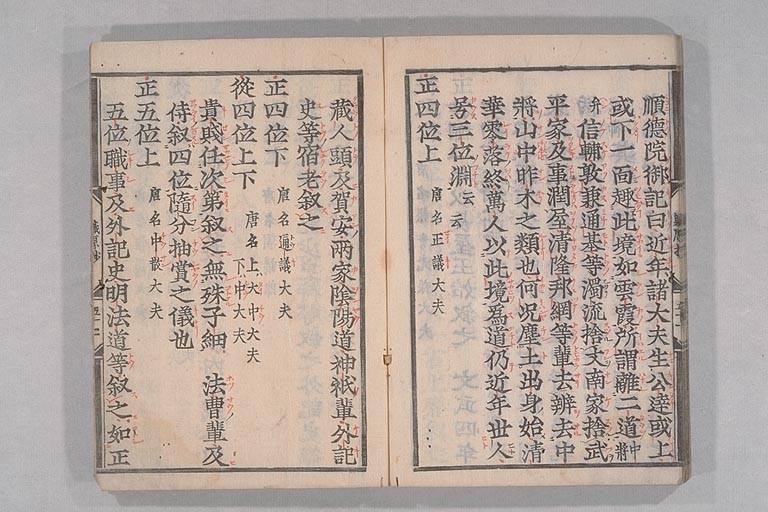 順德院御記曰近年諸大夫生公達或上
或下一向趣此境如雲霞所謂離二道中將
弁信輔敦兼通基等濁流捨文南家捨武
平家及事潤屋清隆邦綱等輩去辨去中
將山中昨木之類也何況塵土出身始清
華零落終萬人以此境為道仍近年世人
号三位淵云云
正四位上 唐名正議大夫
藏人頭及賀安兩家陰陽道神祇輩外記
史等宿老叙之
正四位下 唐名通議大夫
從四位上下 唐名上大中大夫下中大夫
貴賤任次第叙之無殊子細 法曹輩及
侍叙四位隨分抽賞之儀也
正五位上 唐名中散大夫
五位職事及外記史明法道等叙之如正